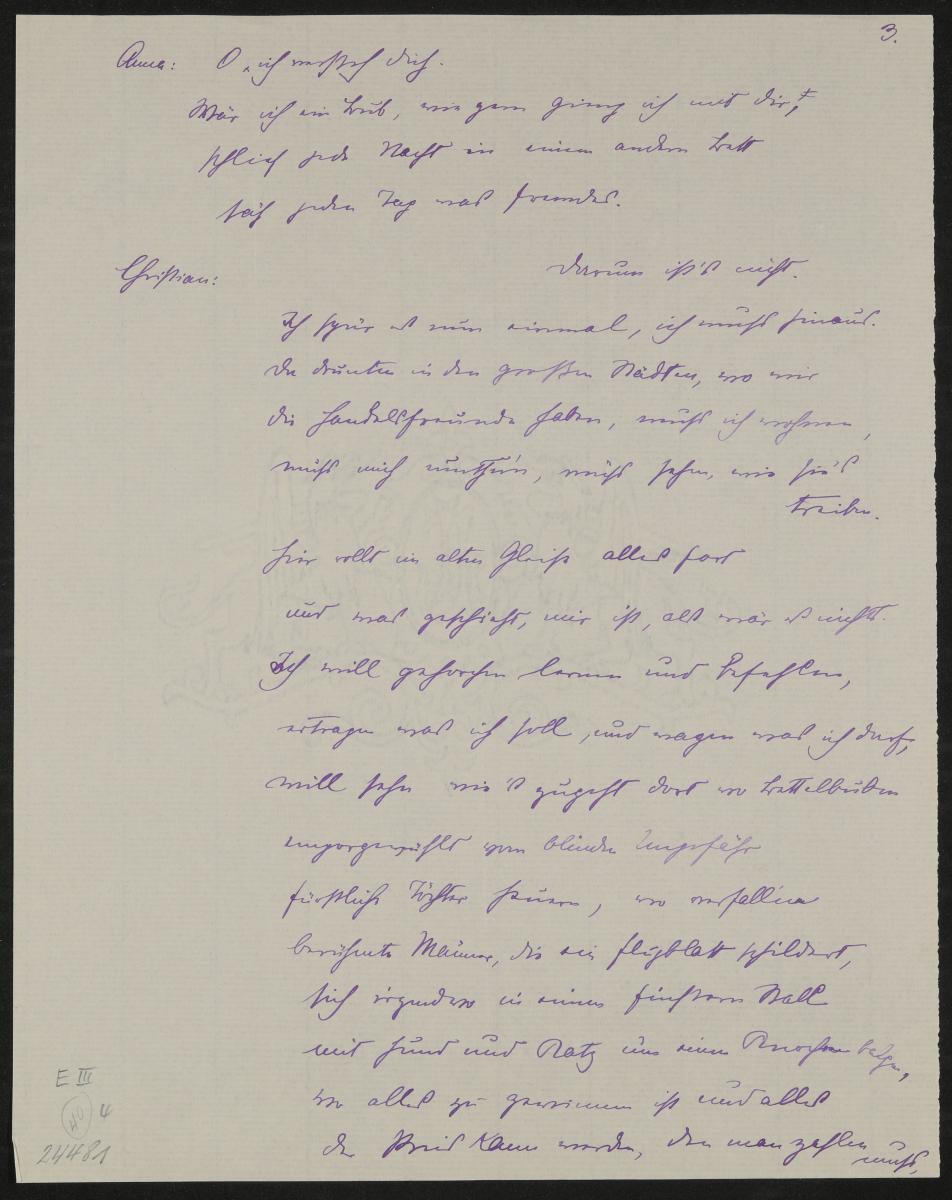 3.
Anna: O, ich versteh dich.
Wär ich ein Bub, wie gern gieng ich mit dir,
schlief jede Nacht in einem andern Bett
säh jeden Tag was fremdes.
Christian: Darum ist's nicht.
Ich spür es nun einmal, ich muß hinaus.
Da drunten in den großen Städten, wo wir
die Handelsfreunde haben, muß ich wohnen,
muß mich umthun, muß sehn, wie sie's
treiben.
hier rollt im alten Gleiß alles fort
und was geschieht, mir ist, als wär es nichts.
Ich will gehorchen lernen und befehlen,
ertragen was ich soll, und wagen was ich darf,
will sehn wie's zugeht dort wo Bettelbuben
emporgewühlt vom blinden Ungefähr
fürstliche Töchter freien, wo
berühmte Männer, die ein Flugblatt schildert,
sich irgendwo in einem finstern Stall
mit Hund und Ratz um einen Knochen balgen,
wo alles zu gewinnen ist und alles
der Preis kann werden, den man zahlen
muß,
E III
40 4
24481